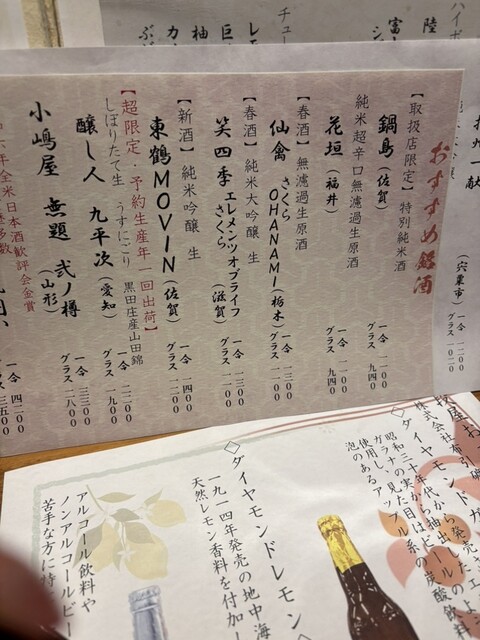 おすすめ銘酒
【取扱店限定】特別純米酒
鍋島（佐賀）
一合 一一〇〇
グラス 九四〇
純米超辛口無濾過生原酒
花垣（福井）
一合 一一〇〇
グラス 九四〇
【春酒】無濾過生原酒
仙禽 さくら OHANAMI（栃木）
一合 一三〇〇
グラス 一一〇〇
【春酒】純米大吟醸 生
笑四季 エレメンツオブライフ さくら（滋賀）
一合 一三〇〇
グラス 一一〇〇
【新酒】純米吟醸 生
東鶴 MOVIN（佐賀）
一合 一四〇〇
グラス 一二〇〇
【超限定 予約生産年一回出荷】
しぼりたて生 うすにごり 黒田庄産山田錦
醸し人 九平次（愛知）
一合 二二〇〇
グラス 一九〇〇
小嶋屋 無題 弐ノ樽（山形）
一合 三三〇〇
グラス 二八〇〇
六年全米日本酒歓評会金賞
一合 四二〇〇
グラス 三五〇〇
（宍粟市）
一合 一二〇〇
グラス 一〇二〇
ハイボ
陸
富
チュー
レモ
巨
柚
カ
昭和三十年代から
使用し
泡のある
◇ダイヤモンドレモン◇
一九一四年発売の地中海
天然レモン香料を付加し
アルコール飲料や
ノンアルコールビー
苦手な方に特